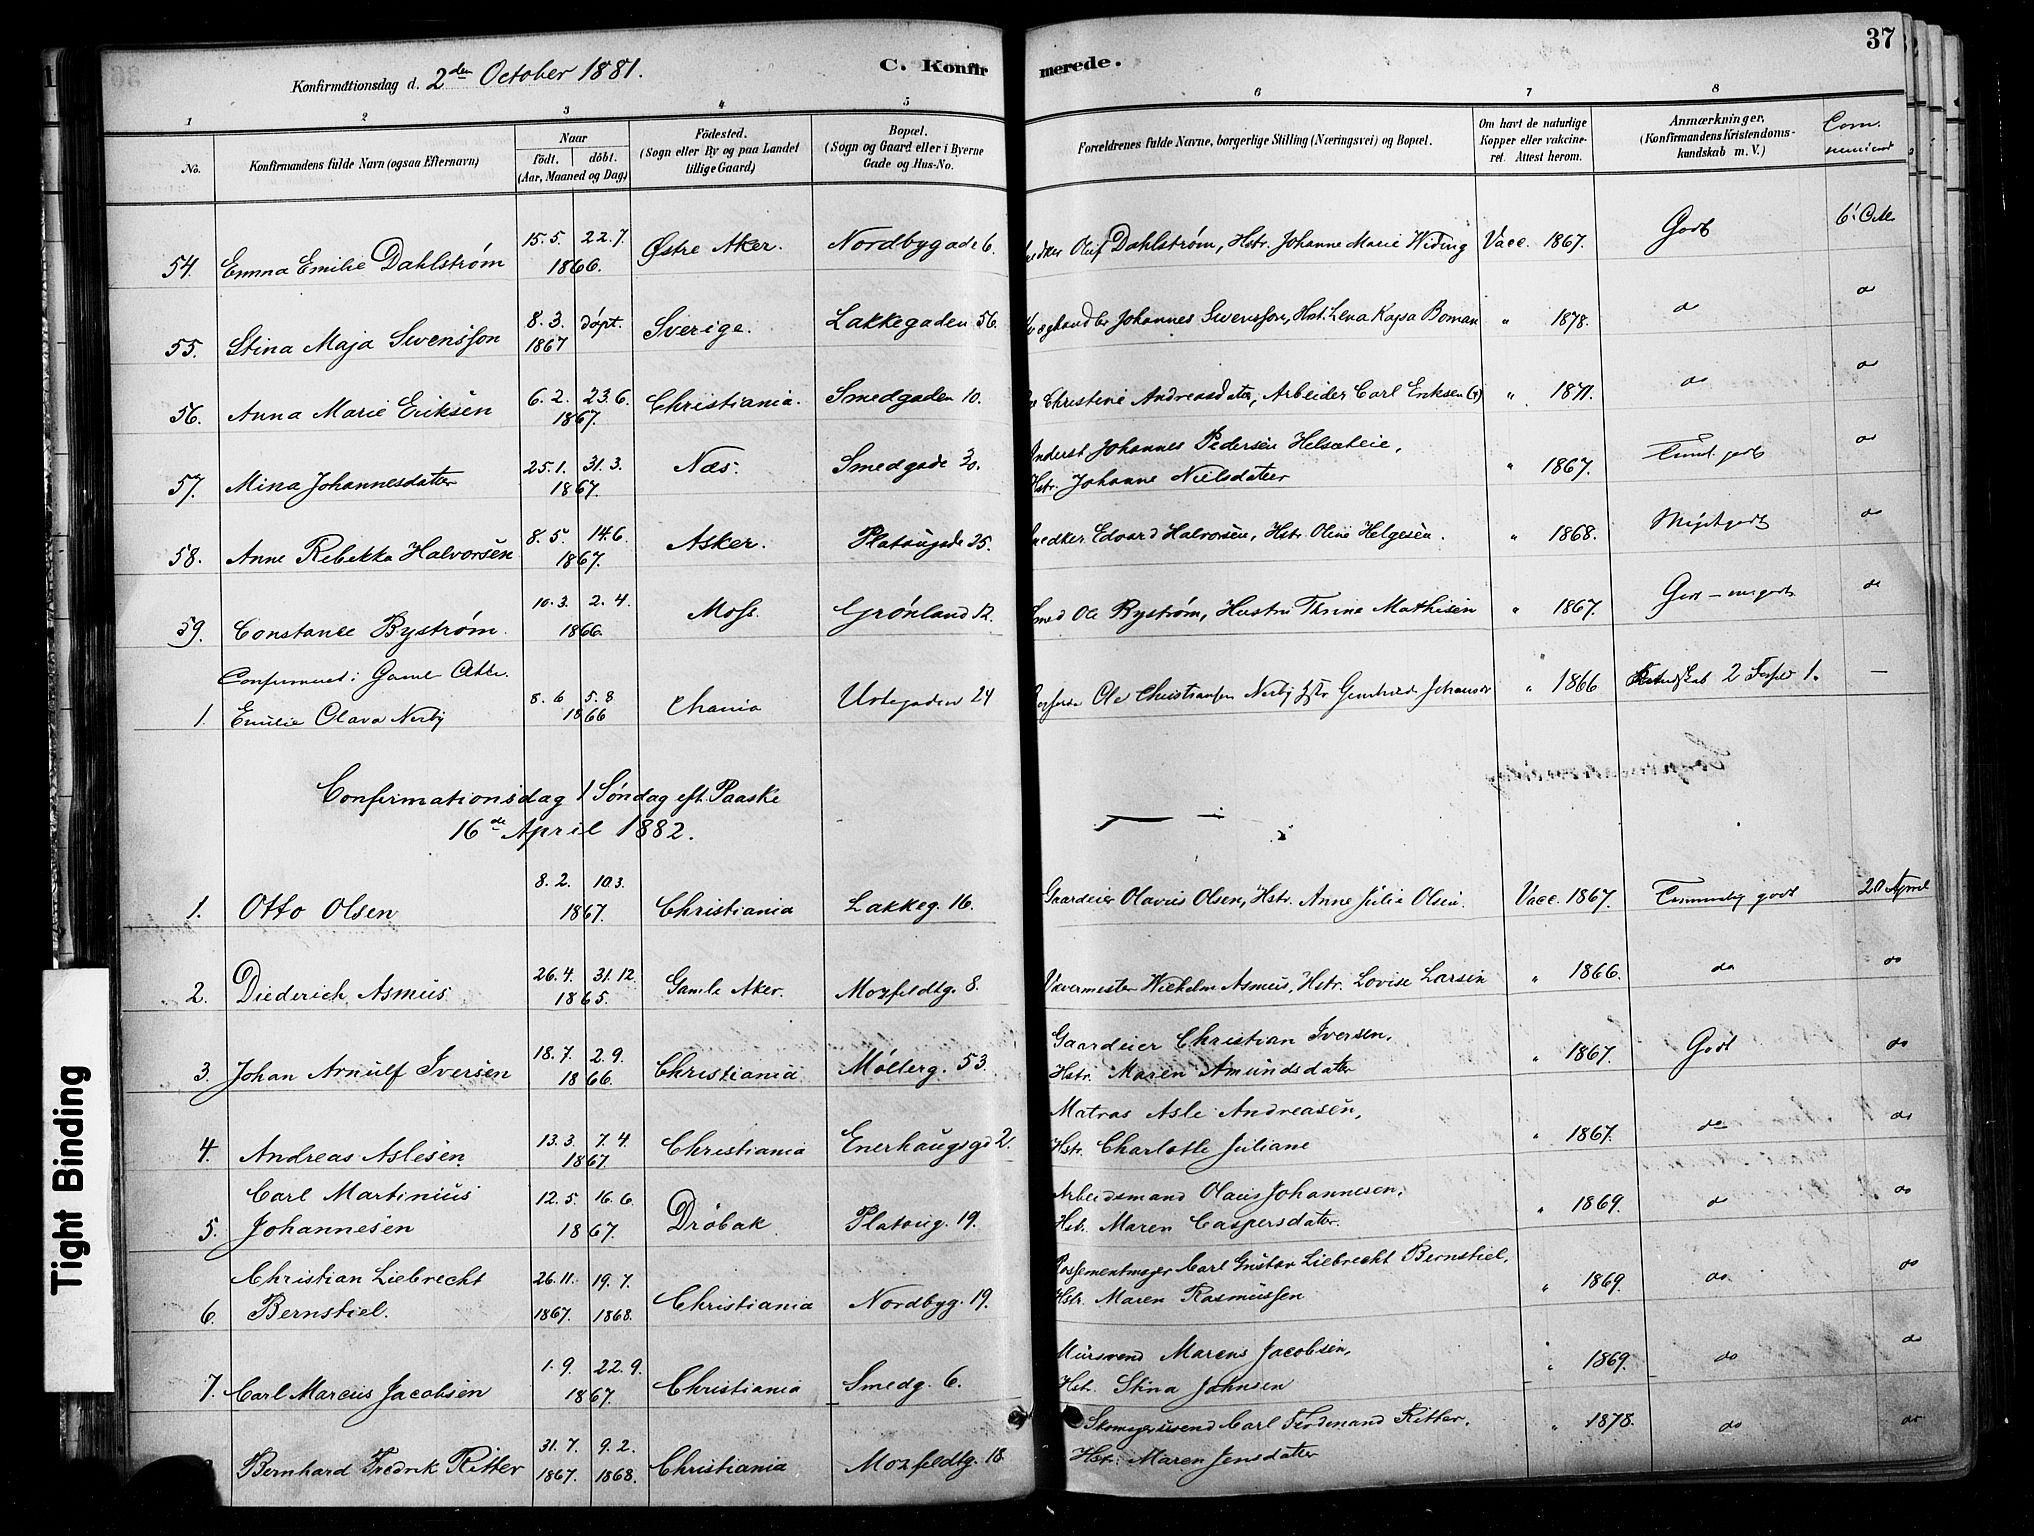 37
Konfirmationsdag d. 2den October 1881.
C. Konfirmerede.
1 2 3 4 5 6 7 8
No.
Konfirmandens fulde Navn (ogsaa Efternavn)
Naar
födt. döbt.
(Aar, Maaned og Dag)
Födested.
(Sogn eller By og paa Landet
tillige Gaard)
Bopæl.
(Sogn og Gaard eller i Byerne
Gade og Hus-No.
Forældrenes fulde Navne, borgerlige Stilling (Næringsvei) og Bopæl.
Om havt de naturlige
Kopper eller vakcine-
ret. Attest herom.
Anmærkninger.
(Konfirmandens Kristendoms-
kundskab m. V.)
54. Emma Emilie Dahlstrøm 15.5. 22.7. 1866. Østre Aker. Nordbygade 6. Oluf Dahlstrøm, Hstr. Johanne Marie Widing Vacc. 1867. Godt
55. Stina Maja Swensson 8.3. døpt. 1867 Sverige. Lakkegaden 56. Johannes Swensson, Hst. Lena Kajsa Boman " 1878. do do
56. Anna Marie Eriksen 6.2. 23.6. 1867. Christiania. Smedgaden 10. Christine Andreasdater, Arbeider Carl Eriksen " 1871. do do
57. Mina Johannesdatter 25.1. 31.3. 1867. Næs. Smedgade 30. Johannes Pedersen
Hstr. Johanne Nielsdatter " 1867. do
58. Anne Rebekka Halvorsen 8.5. 14.6. 1867. Asker. Platougade 25. Edvard Halvorsen, Hstr. Oline Helgesen. " 1868. Megetgodt do
59. Constance Bystrøm. 10.3. 2.4. 1866. Moss. Grønland 12. Smed Ole Bystrøm, Hustru Thrine Mathisen " 1867. Godt – megodt do
Confirmeret i Gamle
1. Emilie Olava Nerby 8.6 5.8 1866 Chania 24 Ole Christiansen Nerby " 1866 2 1. —
Confirmationsdag 1 Søndag eft. Paaske
16de April 1882.
1. Otto Olsen 8.2. 10.3. 1867. Christiania Lakkeg. 16. Gaardeier Olavius Olsen, Hstr. Anne Julie Olsen. Vacc. 1867. Temmelig godt 20 April
2. Diederich Asmus 26.4. 31.12. 1865. Gamle Aker. Mozfeldtg. 8. Vævermester Wilhelm Asmus, Hstr. Lovise Larsen " 1866. do do
3. Johan Arnulf Iversen 18.7. 2.9. 1866. Christiania Møllerg. 53. Gaardeier Christian Iversen,
Hstr. Maren Amundsdatter " 1867. Godt do
4. Andreas Aslesen 13.3. 7.4. 1867. Christiania Enerhaugsgd 2. Matros Asle Andreasen,
Hstr. Charlotte Juliane " 1867. do do
5. Carl Martinius
Johannesen 12.5. 16.6. 1867. Drøbak Platoug. 19. Arbeidsmand Olaus Johannesen,
Hstr. Maren Caspersdatter. " 1869. do do
6. Christian Liebrecht
Bernstiel. 26.11. 1867. 19.7. 1868. Christiania Nordbyg. 19. Possementmager Carl Gustav Liebrecht Bernstiel,
Hstr. Maren Rasmussen " 1869. do do
7. Carl Marcus Jacobsen 1.9. 22.9. 1867. Christiania Smedg. 6. Mursvend Marcus Jacobsen,
Hst. Stina Johnsen " 1869. do do
Bernhard Fredrik Ritter 31.7. 1867. 9.2. 1868. Christiania Mozfeldtg. 18 Skomagersvend Carl Ferdinand Ritter,
Hst. Maren Jensdatter " 1878. do do
Tight Binding